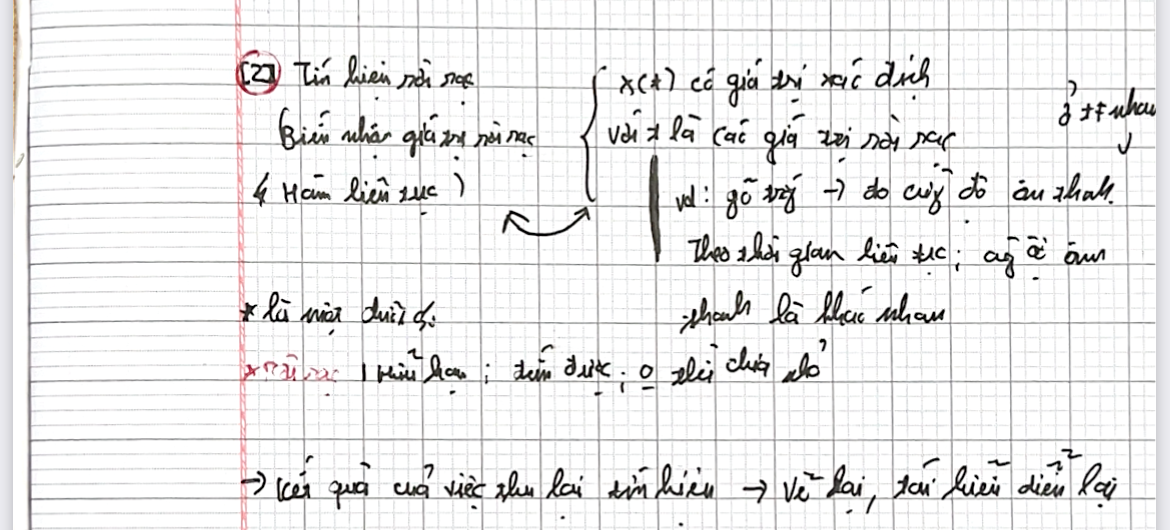 [2] Tín hiệu rời rạc
(Biến nhận giá trị rời rạc
& Hàm liên tục)
x(t) có giá trị xác định
với t là các giá trị rời rạc
ở t ≠ nhau
vd: gõ trống → đo cường độ âm thanh.
Theo thời gian liên tục;
âm
thanh là khác nhau
* là một chuỗi số:
* rời rạc | hữu hạn; đếm được;
chia nhỏ
→ Kết quả của việc thu lại tín hiệu → Vẽ lại, tái biểu diễn lại